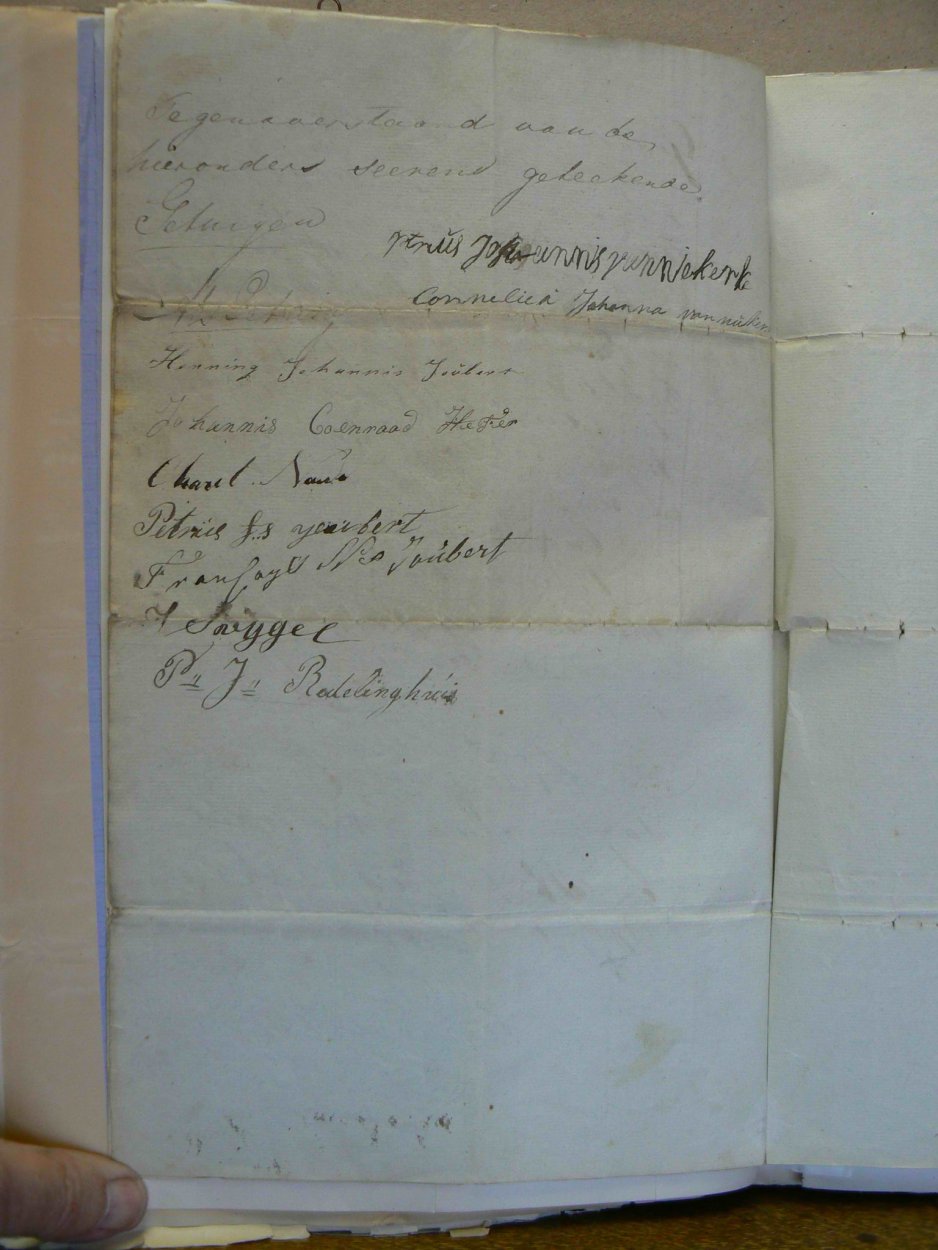 Tegenoverstaand van de
hieronders teerend geteekende
Getuigen
Johannis van niekerk
Cornelicà Johanna van nieker
As Getuig
Henning Johannis Joubert
Johannis Coenraad Hefer
Charl
Petrus J:s youbert
Fransoys Ns Joubert
P: J: Redelinghuis